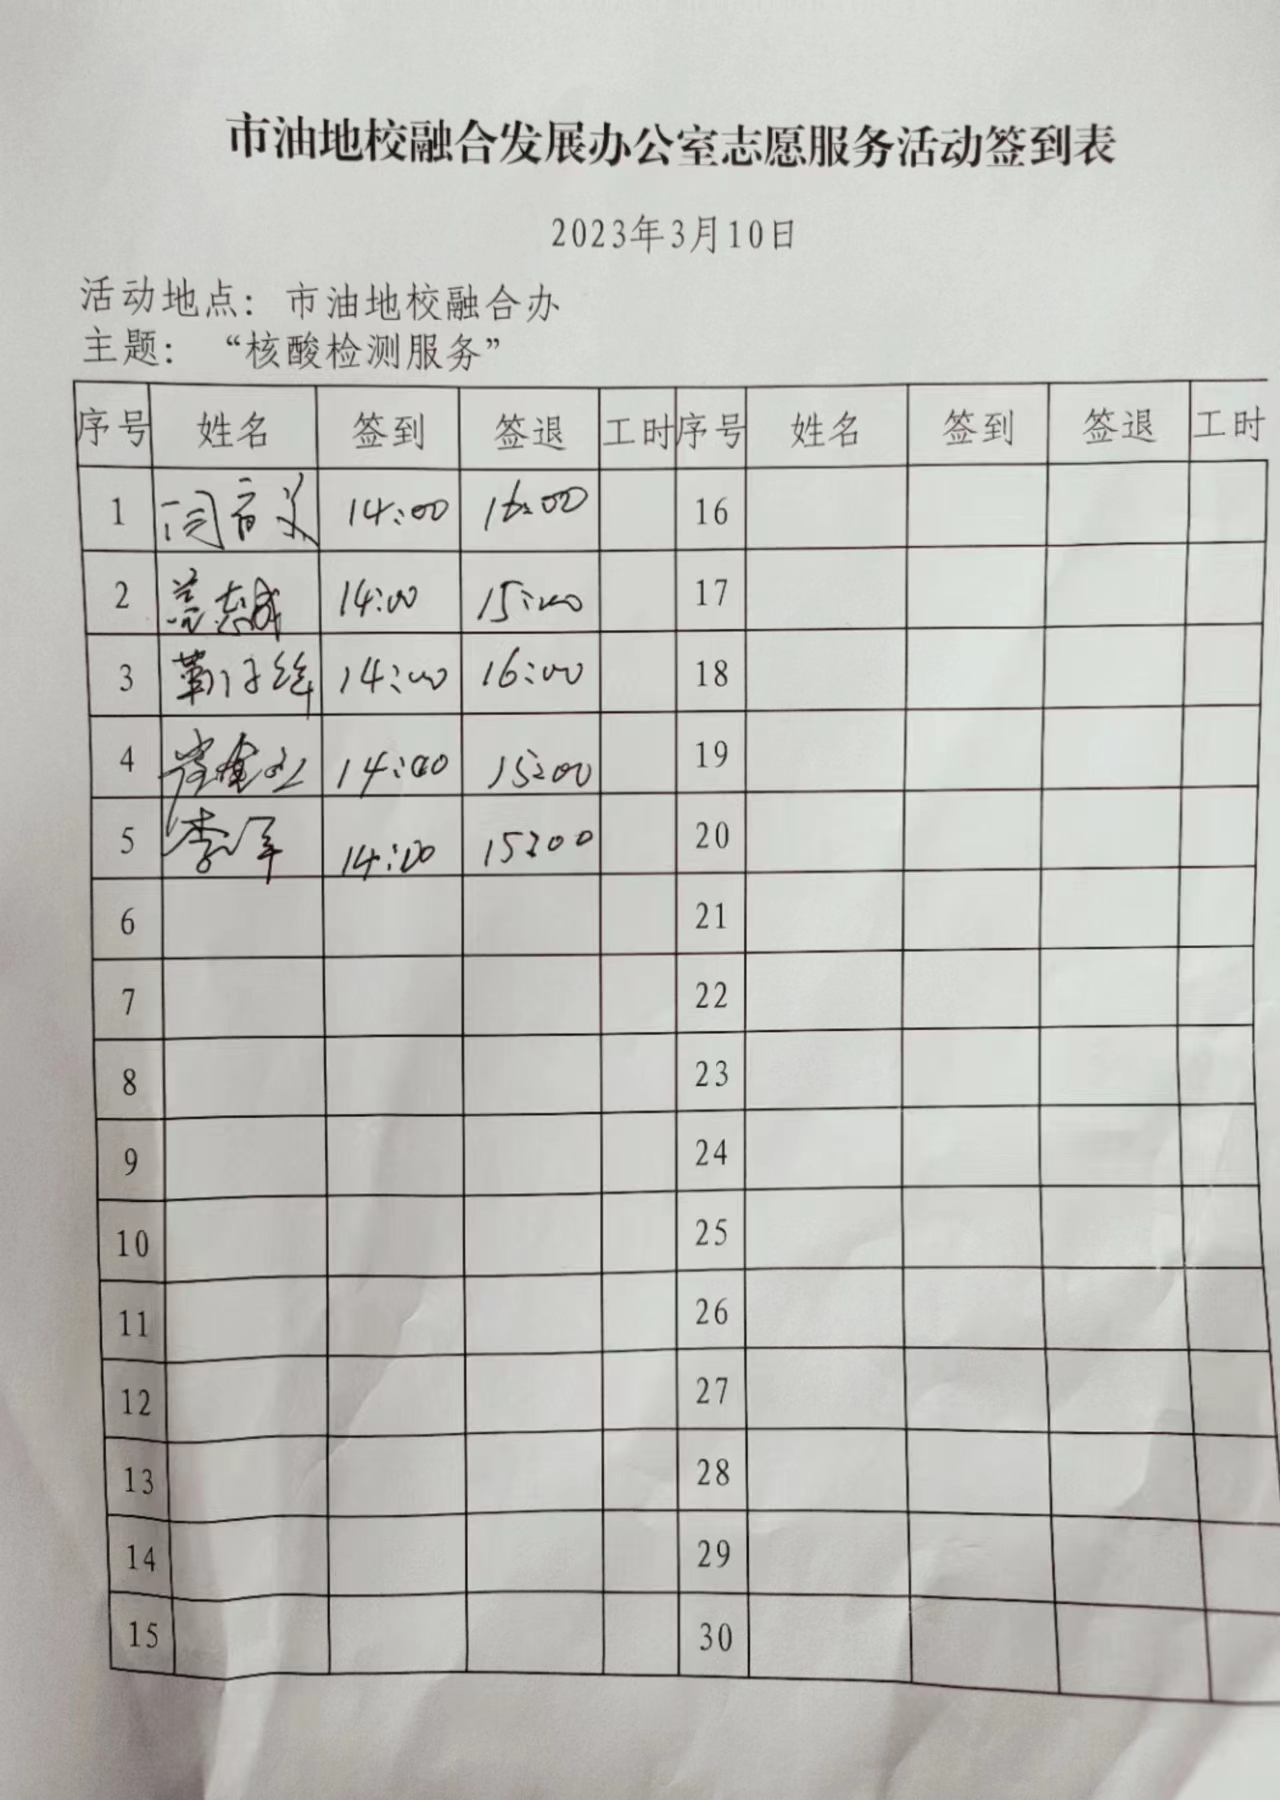 市油地校融合发展办公室志愿服务活动签到表
2023年3月10日
活动地点：市油地校融合办
主题：“核酸检测服务”
序号 姓名 签到 签退 工时 序号 姓名 签到 签退 工时
1 14:00 16:00 16
2 14:00 15:00 17
3 14:00 16:00 18
4 14:00 15:00 19
5 李军 14:00 15:00 20
6 21
7 22
8 23
9 24
10 25
11 26
12 27
13 28
14 29
15 30